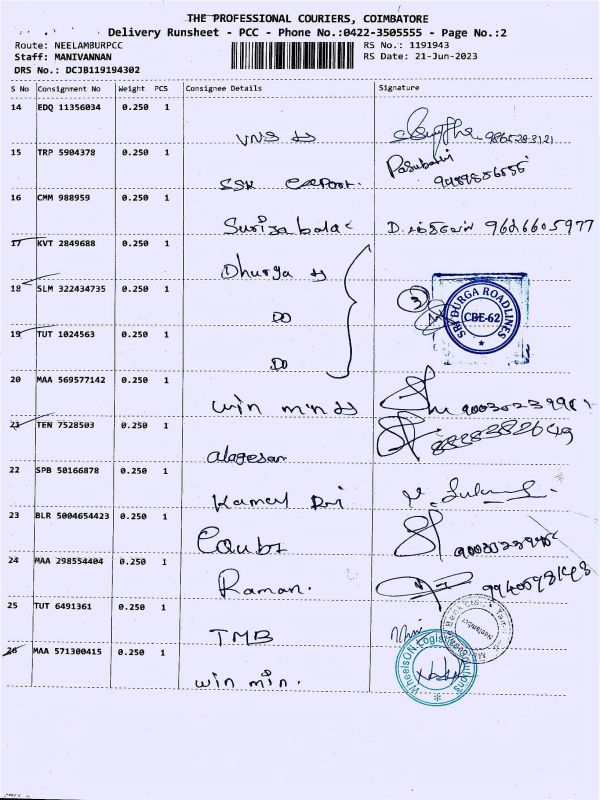 THE PROFESSIONAL COURIERS, COIMBATORE
Delivery Runsheet - PCC - Phone No.:0422-3505555 - Page No.:2
Route: NEELAMBURPCC
RS No.: 1191943
Staff: MANIVANNAN
RS Date: 21-Jun-2023
DRS No.: DCJB119194302
S No Consignment No Weight PCS Consignee Details Signature
14 EDQ 11356034 0.250 1
VNS
15 TRP 5904378 0.250 1
SSK
16 CMM 988959 0.250 1
D. 9626605977
17 KVT 2849688 0.250 1
Dhurga
18 SLM 322434735 0.250 1
DO
SRI DURGA ROADLINES
CBE-62
19 TUT 1024563 0.250 1
DO
20 MAA 569577142 0.250 1
win min
21 TEN 7528503 0.250 1
alagesan
22 SPB 50166878 0.250 1
23 BLR 5004654423 0.250 1
24 MAA 298554404 0.250 1
Raman.
25 TUT 6491361 0.250 1
TMB
26 MAA 571300415 0.250 1
win min.
WheelsON Logistics Solutions